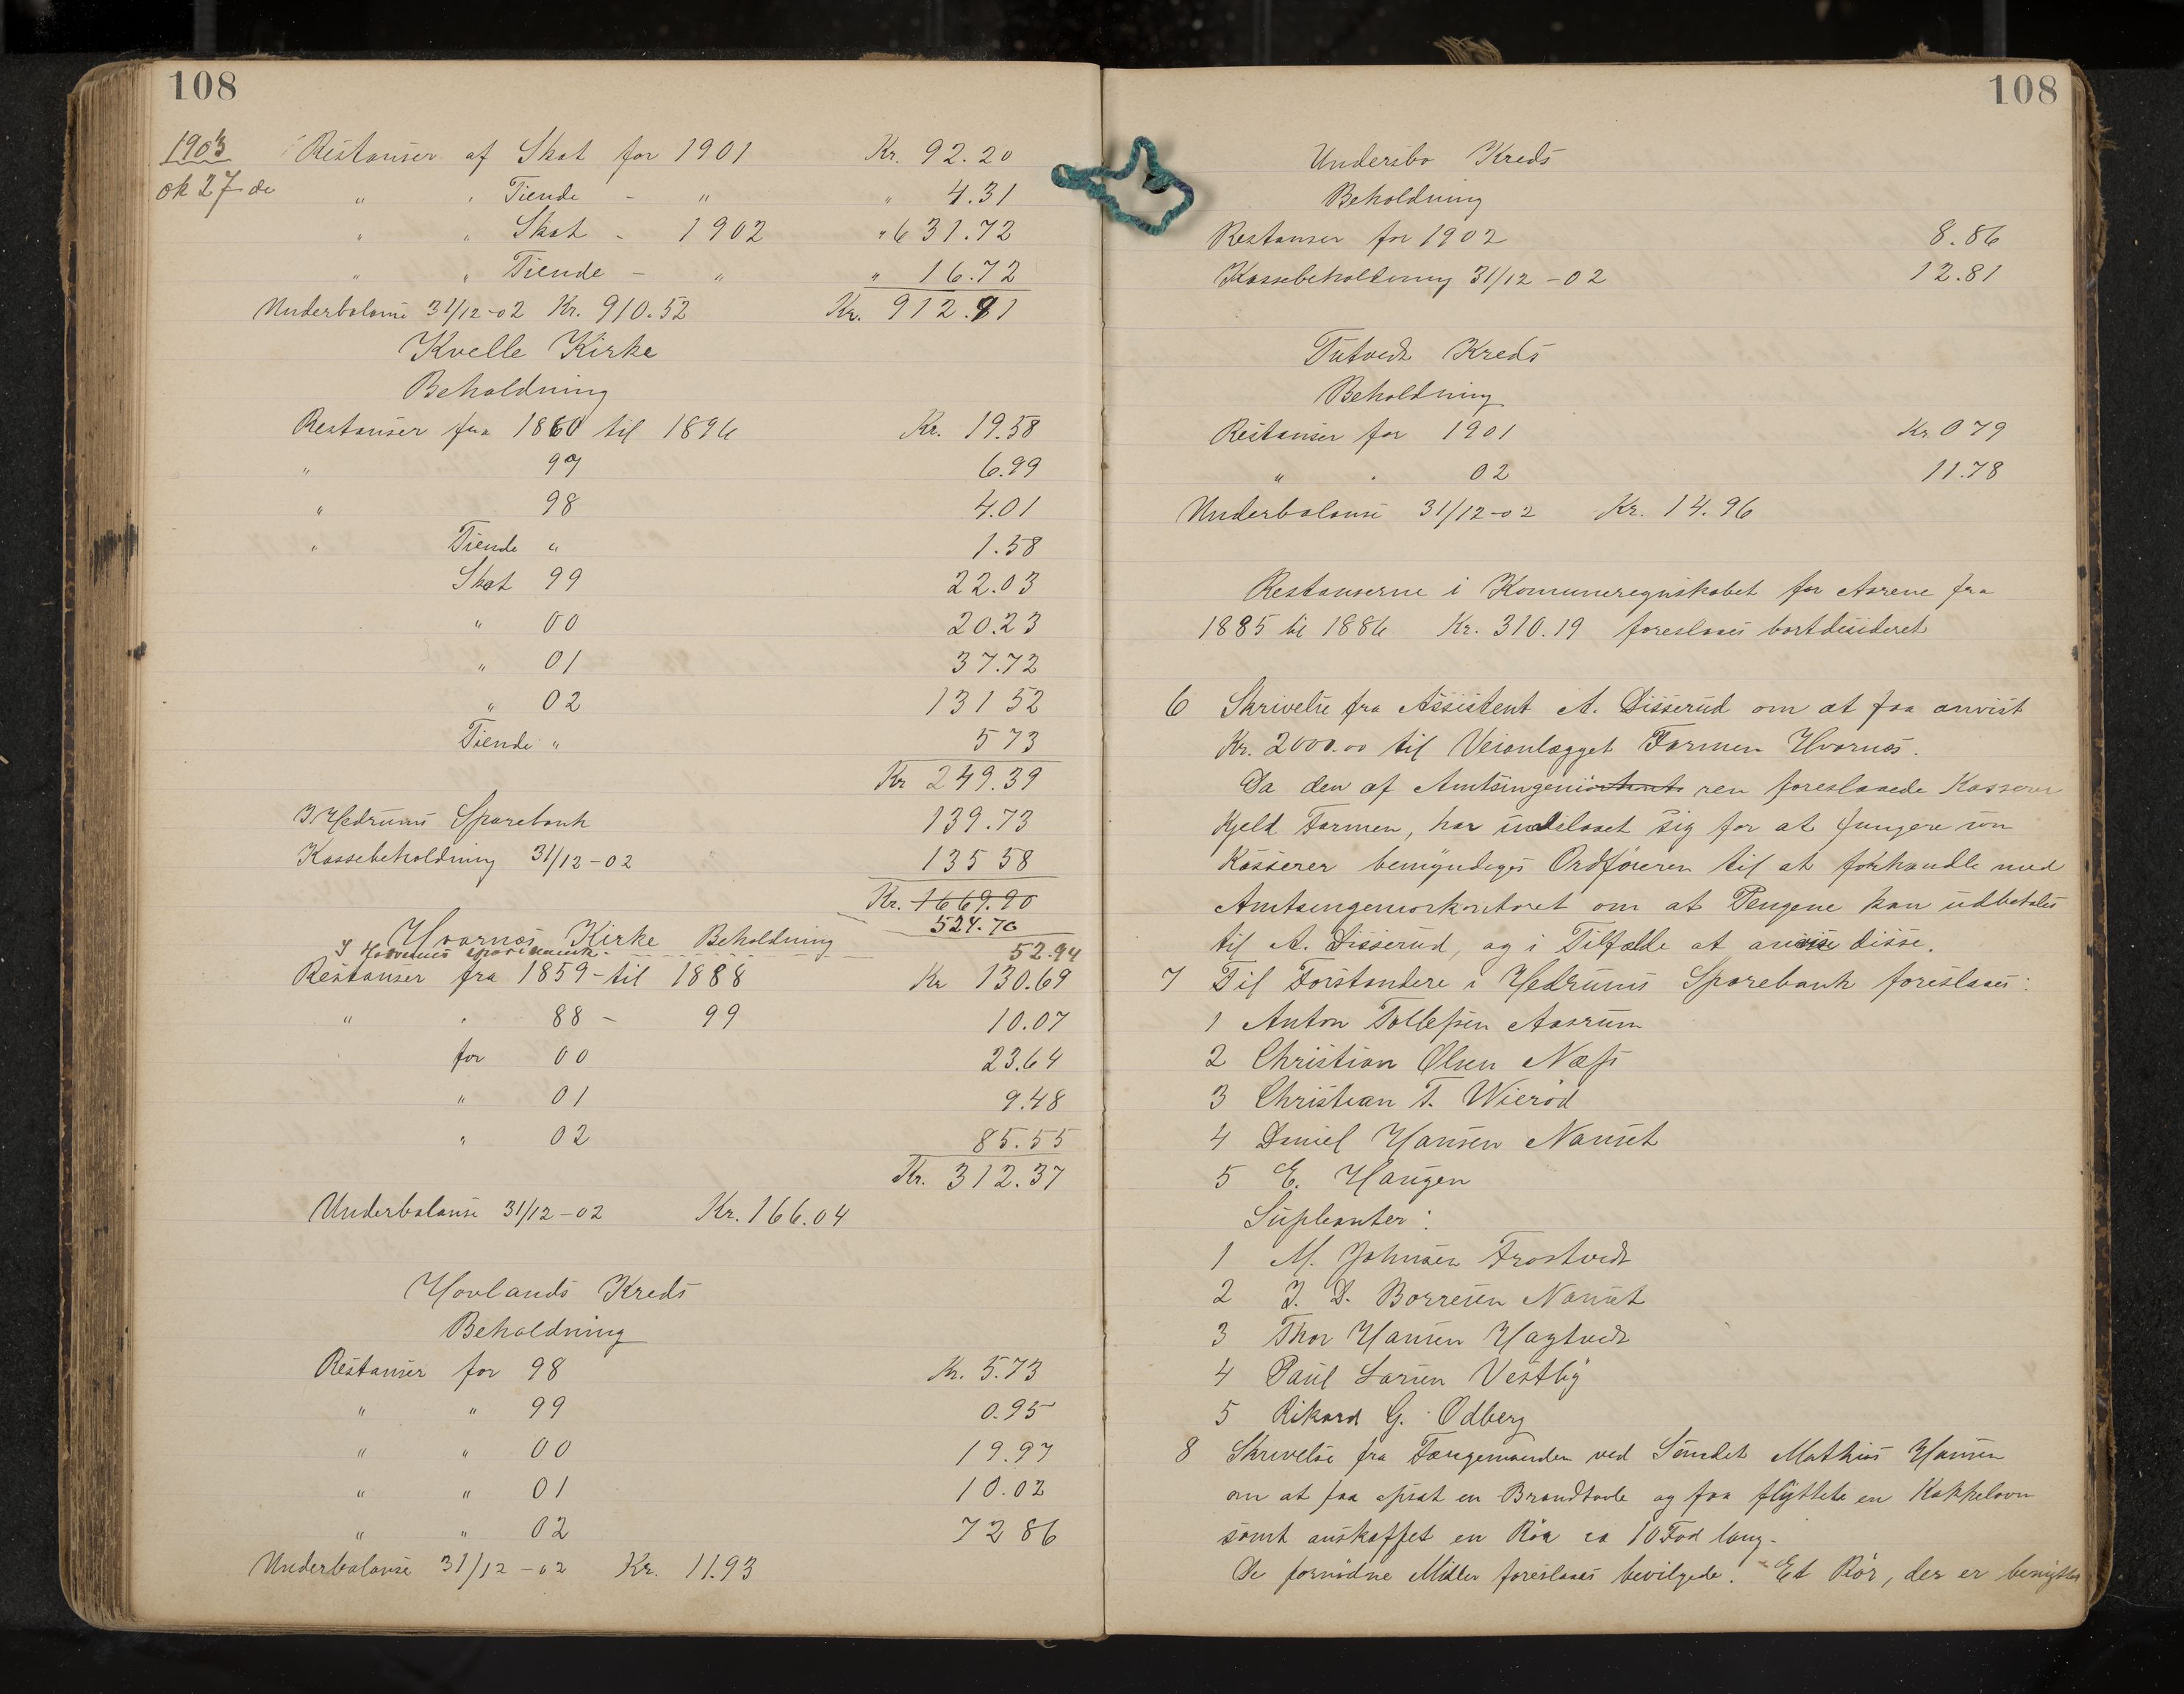 108
1903
ok 27 de
Restanser af Skat for 1901 Kr. 92.20
" " Tiende - " " 4.31
" " Skat - 1902 " 631.72
" " Tiende - " " 16.72
Underbalanse 31/12-02 Kr. 910.52 Kr. 912.91
Kvelle Kirke
Beholdning
Restanser fra 1860 til 1896 Kr. 19.58
" 97 6.99
" 98 4.01
" Tiende " 1.58
Skat 99 22.03
" 00 20.23
" 01 37.72
" 02 131 52
Tiende " 5 73
Kr 249.39
I Hedrums Sparebank 139.73
Kassebeholdning 31/12-02 135 58
Kr. 1669.90
524.70
Hvarnæs Kirke Beholdning
52.94
Restanser fra 1859-til 1888 Kr 130.69
" " 88 - 99 10.07
for 00 23.64
" 01 9.48
" 02 85.55
Kr. 312.37
Underbalanse 31/12-02 Kr. 166.04
Hovlands Kreds
Beholdning
Restanser for 98 Kr. 5.73
" " 99 0.95
" " 00 19.97
" " 01 10.02
" " 02 72 86
Underbalanse 31/12-02 Kr. 11.93
108
Undersbo Kreds
Beholdning
Restanser for 1902 8.86
Kassebeholdning 31/12-02 12.81
Tutvedt Kreds
Beholdning
Restanser for 1901 Kr 0 79
" " 02 11.78
Underbalanse 31/12-02 Kr. 14.96
Restanserne i Komuneregnskabet for Aarene fra
1885 til 1886 Kr. 310.19 foreslaaes bortdesideret
6 Skrivelse fra Assistent A. Disserud om at faa anvist
Kr. 2000.00 til Veianlægget Farmen Hvarnæs.
Da den af Amtsingeniøren foreslaaede Kasserer
Kjeld Farmen, har undslaaet sig for at fungere som
Kasserer bemyndiges Ordføreren til at forhandle med
Amtsingeniørkontoret om at Pengene kan udbetales
til A. Disserud, og i Tilfælde at anvise disse.
7 Til Forstandere i Hedrums Sparebank foreslaaes:
1 Anton Tollefsen Aasrum
2 Christian Olsen Næss
3 Christian T. Wierød
4 Daniel Hansen Nanset
5 E. Haugen
Supleanter:
1 M. Johnsen Frostvedt
2 J. D. Borresen Nanset
3 Thor Hansen Hagtvedt
4 Paul Larsen Vestby
5 Rikard G. Odberg
8 Skrivelse fra Færgemanden ved Sundet Mathias Hansen
om at faa opsat en Brandtavle og faa flyttet en Kakkelovn
samt anskaffet en Rør ca 10 Fod lang.
De fornødne Midler foreslaaes bevilgede. - Et Rør, der er benyttet